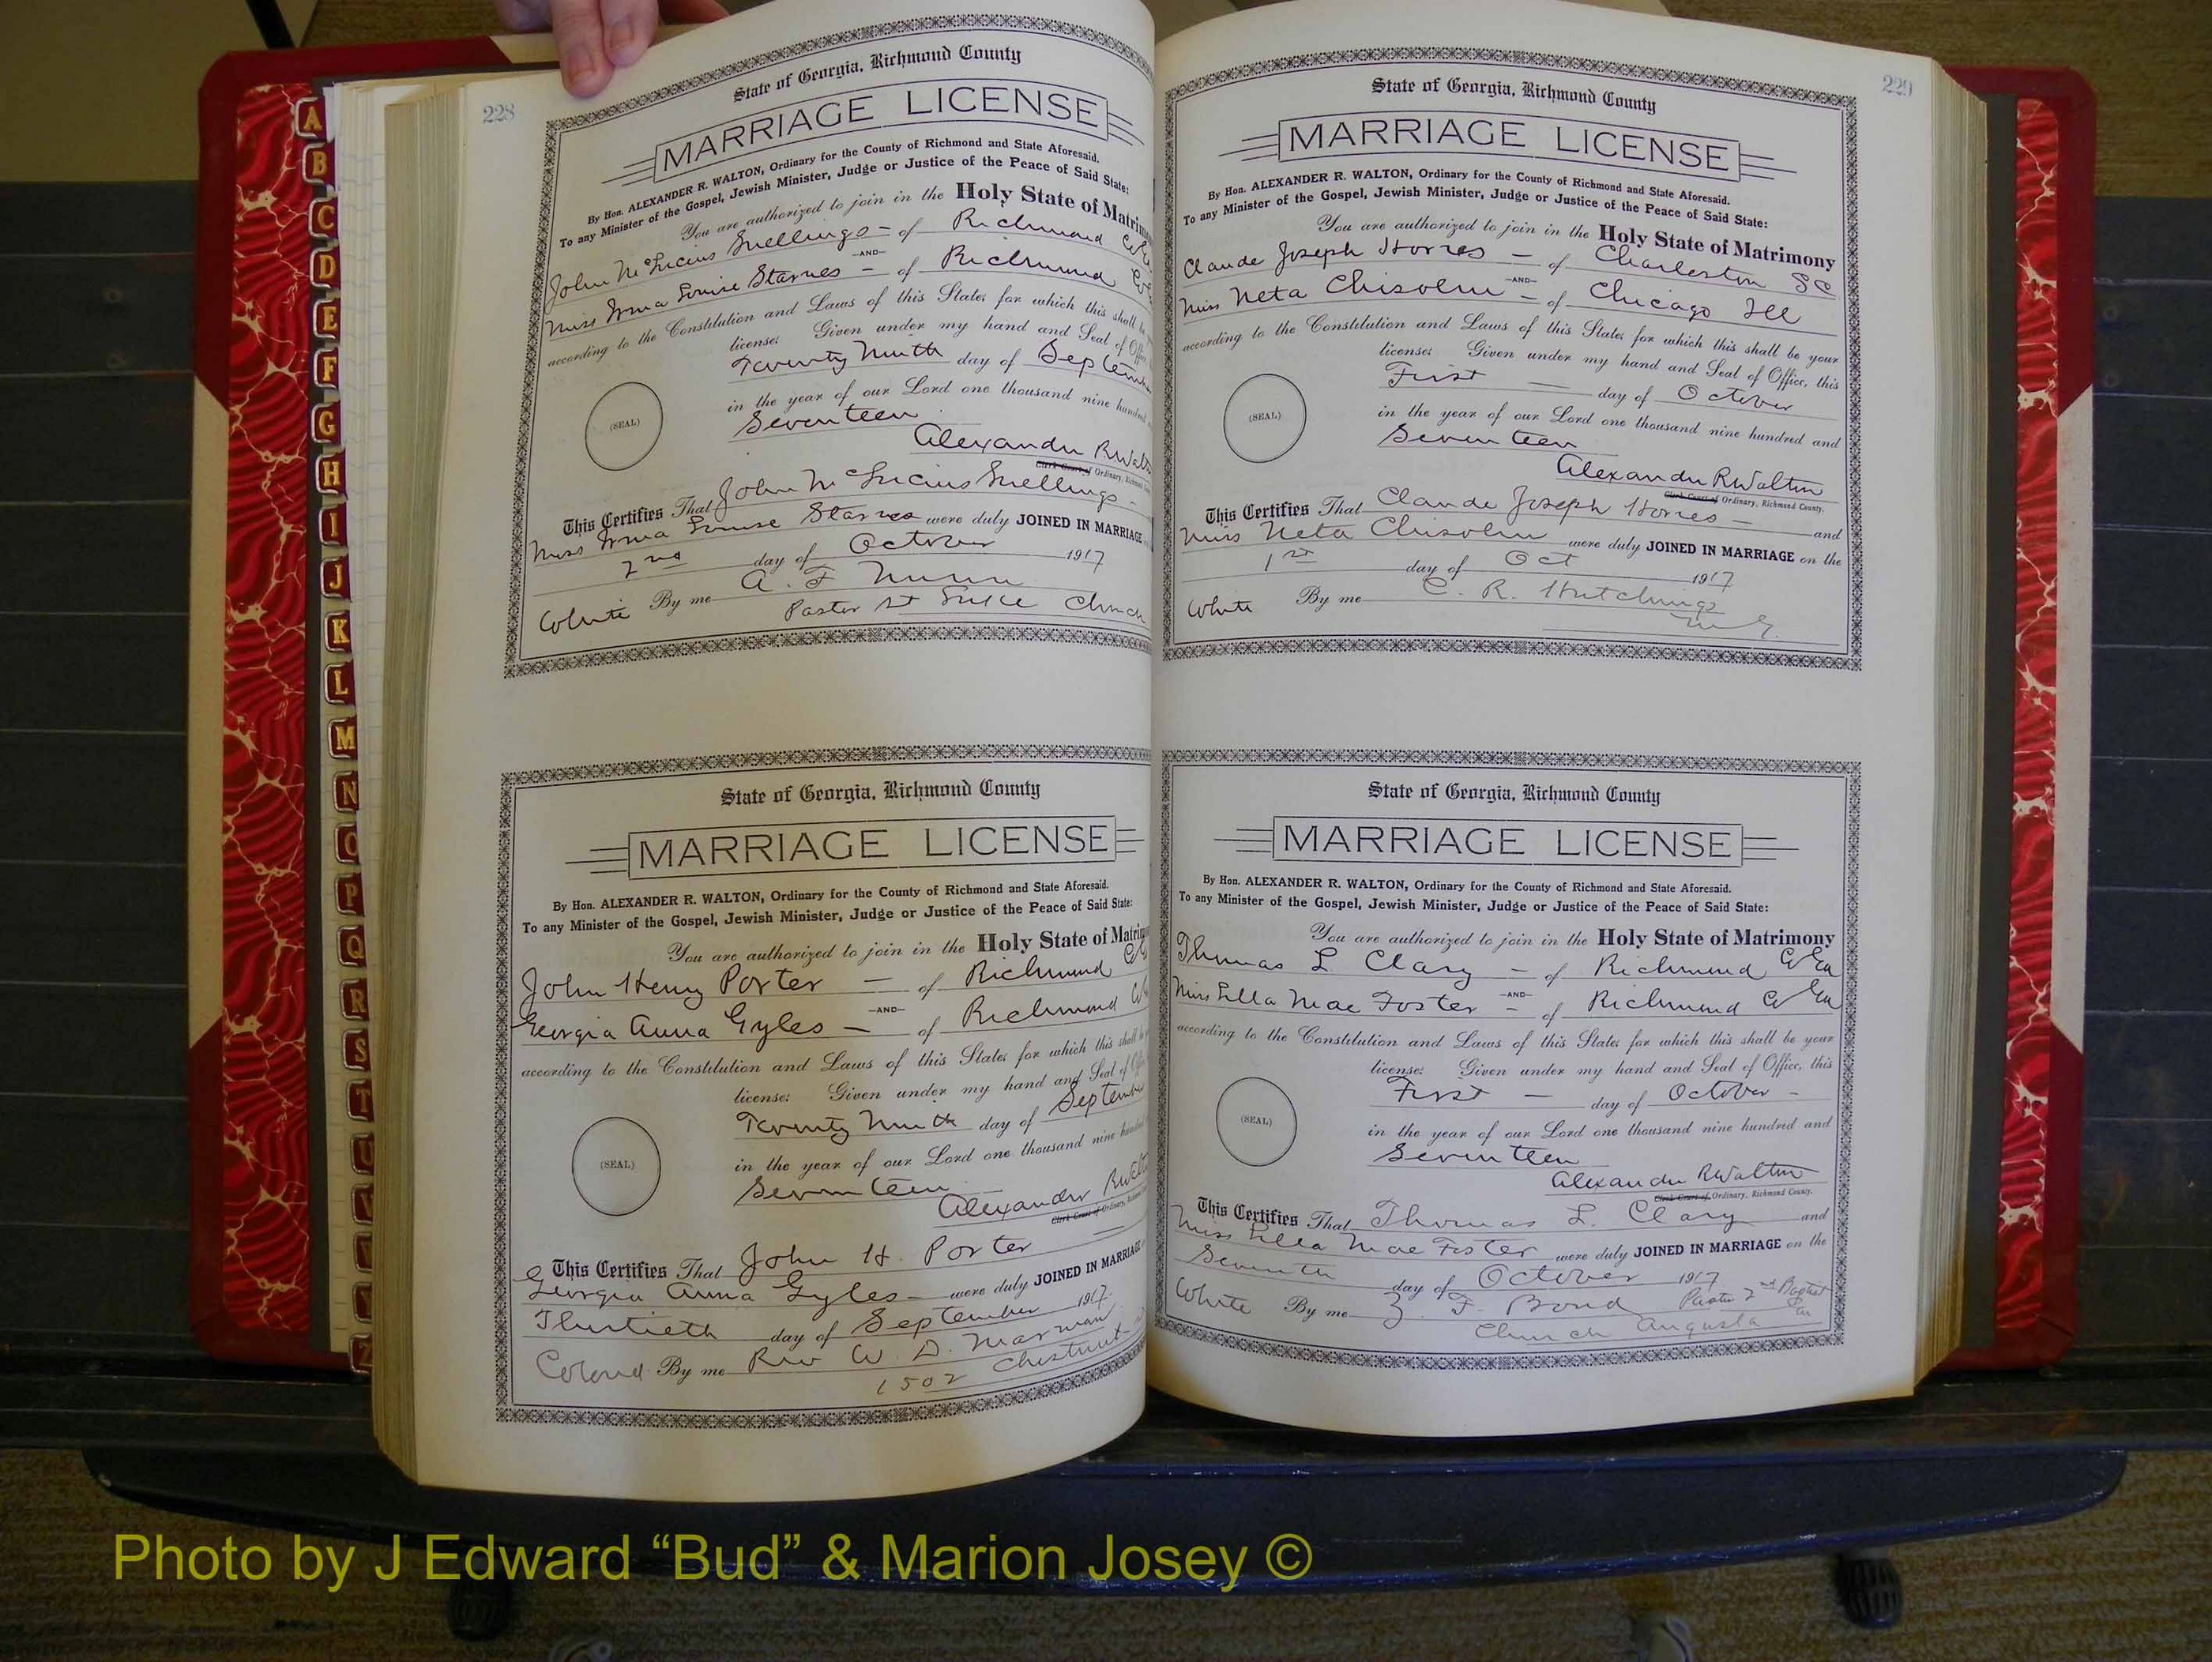 A
B
C
D
E
F
G
H
I
J
K
L
M
N
O
P
Q
R
S
T
U
V
Z
228
State of Georgia, Richmond County
MARRIAGE LICENSE
By Hon. ALEXANDER R. WALTON, Ordinary for the County of Richmond and State Aforesaid.
To any Minister of the Gospel, Jewish Minister, Judge or Justice of the Peace of Said State:
You are authorized to join in the Holy State of Matrim
John Snellings - of Richmond Co
AND
Miss Irma Louise Starnes - of Richmond Co
according to the Constitution and Laws of this State; for which this shall
license: Given under my hand and Seal of Offi
Twenty Ninth day of Septem
in the year of our Lord one thousand nine hundred
Seventeen
(SEAL)
Alexander R Walt
Clerk Court of Ordinary, Richmond
This Certifies That John Snellings -
Miss Irma Louise Starnes were duly JOINED IN MARRIAGE
2nd day of October 1917
White By me A. F. Nunn
Pastor St Luke Church
State of Georgia, Richmond County
MARRIAGE LICENSE
By Hon. ALEXANDER R. WALTON, Ordinary for the County of Richmond and State Aforesaid.
To any Minister of the Gospel, Jewish Minister, Judge or Justice of the Peace of Said State:
You are authorized to join in the Holy State of Matrim
John Henry Porter - of Richmond Co
AND
Georgia Anna Gyles - of Richmond Co
according to the Constitution and Laws of this State; for which this shall
license: Given under my hand and Seal of Offi
Twenty Ninth day of September
in the year of our Lord one thousand nine hundred
Seventeen
(SEAL)
Alexander R Walt
Clerk Court of Ordinary, Richmond
This Certifies That John H. Porter
Georgia Anna Gyles - were duly JOINED IN MARRIAGE
Thirtieth day of September 1917
Colored By me Rev W. D. Marman
1502 Chestnut
229
State of Georgia, Richmond County
MARRIAGE LICENSE
By Hon. ALEXANDER R. WALTON, Ordinary for the County of Richmond and State Aforesaid.
To any Minister of the Gospel, Jewish Minister, Judge or Justice of the Peace of Said State:
You are authorized to join in the Holy State of Matrimony
Claude Joseph Horres - of Charleston SC
AND
Miss Neta Chisolm - of Chicago Ill
according to the Constitution and Laws of this State; for which this shall be your
license: Given under my hand and Seal of Office, this
First - day of October
in the year of our Lord one thousand nine hundred and
Seventeen
(SEAL)
Alexander R Walton
Clerk Court of Ordinary, Richmond County.
This Certifies That Claude Joseph Horres - and
Miss Neta Chisolm were duly JOINED IN MARRIAGE on the
1st day of Oct 1917
White By me C. R. Hutchings
State of Georgia, Richmond County
MARRIAGE LICENSE
By Hon. ALEXANDER R. WALTON, Ordinary for the County of Richmond and State Aforesaid.
To any Minister of the Gospel, Jewish Minister, Judge or Justice of the Peace of Said State:
You are authorized to join in the Holy State of Matrimony
Thomas L. Clary - of Richmond Co Ga
AND
Miss Lilla Mae Foster - of Richmond Co Ga
according to the Constitution and Laws of this State; for which this shall be your
license: Given under my hand and Seal of Office, this
First - day of October -
in the year of our Lord one thousand nine hundred and
Seventeen
(SEAL)
Alexander R Walton
Clerk Court of Ordinary, Richmond County.
This Certifies That Thomas L. Clary and
Miss Lilla Mae Foster were duly JOINED IN MARRIAGE on the
Seventh day of October 1917
White By me F. Bond Pastor 2nd Baptist
Church Augusta Ga
Photo by J Edward “Bud” & Marion Josey ©